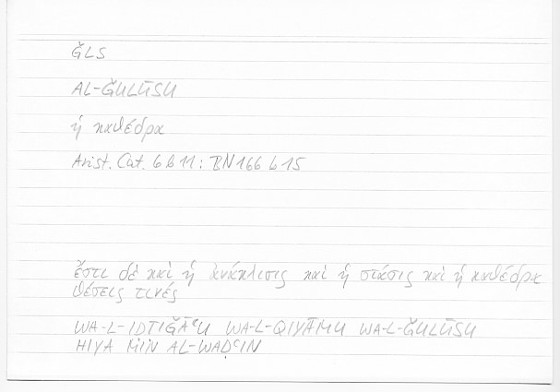 ǦLS
AL-ǦULŪSU
ἡ καθέδρα
Arist. Cat. 6 b 11 : BN 166 b 15
ἔστι δὲ καὶ ἡ ἀνάκλισις καὶ ἡ στάσις καὶ ἡ καθέδρα
θέσεις τινές
WA-L-IḌTIǦĀʿU WA-L-QIYĀMU WA-L-ǦULŪSU
HIYA MIN AL-WAḌʿIN